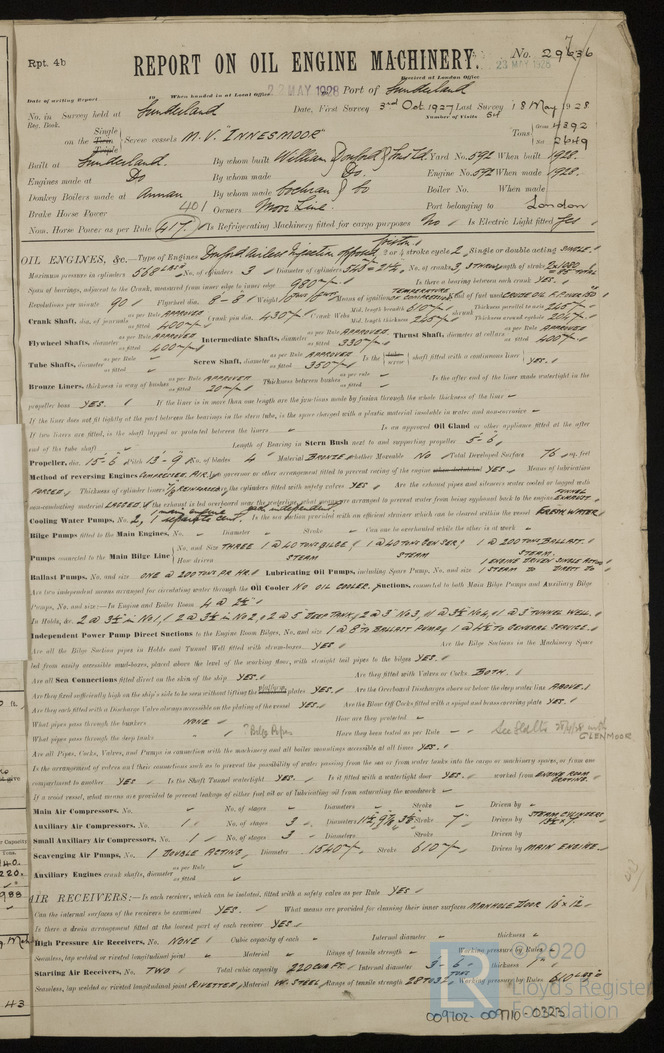 Rpt. 4b
REPORT ON OIL ENGINE MACHINERY.
No. 29636
23 MAY 1928
Received at London Office
Date of writing Report 19 When handed in at Local Office 22 MAY 1928 Port of Sunderland
No. in Reg. Book. Survey held at Sunderland Date, First Survey 3rd Oct 1927 Last Survey 18 May 1928
Number of Visits 84
on the Single Twin Triple Screw vessels M.V. "INNESMOOR" Tons Gross 4392 Net 2649
Built at Sunderland. By whom built William Doxford & Sons Ltd. Yard No. 592 When built 1928.
Engines made at Do By whom made Do. Engine No. 592 When made 1928.
Donkey Boilers made at Annan By whom made Cochran & Co Boiler No. When made
Brake Horse Power 401 Owners Moor Line. Port belonging to London
Nom. Horse Power as per Rule 417. Is Refrigerating Machinery fitted for cargo purposes No Is Electric Light fitted Yes
OIL ENGINES, &c.—Type of Engines Doxford Airless Injection opposed piston. 2 or 4 stroke cycle 2, Single or double acting SINGLE.
Maximum pressure in cylinders 568 LBS No. of cylinders 3 Diameter of cylinders No. of cranks 3, Length of stroke
Span of bearings, adjacent to the Crank, measured from inner edge to inner edge 980 m/m Is there a bearing between each crank YES.
Revolutions per minute 90 Flywheel dia. 8'-8" Weight Means of ignition TEMPERATURE OF COMPRESSION Kind of fuel used CRUDE OIL
Crank Shaft, dia. of journals as per Rule APPROVED as fitted 400 m/m Crank pin dia. 430 m/m Crank Webs Mid. length breadth 610 m/m Mid. length thickness 245 m/m Thickness parallel to axis 245 m/m Thickness around eyehole 204 m/m
Flywheel Shafts, diameter as per Rule APPROVED as fitted 400 m/m Intermediate Shafts, diameter as per Rule APPROVED as fitted 330 m/m Thrust Shaft, diameter at collars as per Rule APPROVED as fitted 400 m/m
Tube Shafts, diameter as per Rule as fitted Screw Shaft, diameter as per Rule APPROVED as fitted 350 m/m Is the tube screw shaft fitted with a continuous liner YES.
Bronze Liners, thickness in way of bushes as per Rule APPROVED as fitted 20 m/m Thickness between bushes as per rule as fitted Is the after end of the liner made watertight in the
propeller boss YES. If the liner is in more than one length are the junctions made by fusion through the whole thickness of the liner
If the liner does not fit tightly at the part between the bearings in the stern tube, is the space charged with a plastic material insoluble in water and non-corrosive
If two liners are fitted, is the shaft lapped or protected between the liners Is an approved Oil Gland or other appliance fitted at the after
end of the tube shaft Length of Bearing in Stern Bush next to and supporting propeller 5'-6"
Propeller, dia. 15'-6" Pitch 13'-9" No. of blades 4 Material BRONZE whether Moveable NO Total Developed Surface 76 sq. feet
Method of reversing Engines COMPRESSED AIR. Is a governor or other arrangement fitted to prevent racing of the engine when declutched YES Means of lubrication
FORCED Thickness of cylinder liners Are the cylinders fitted with safety valves YES Are the exhaust pipes and silencers water cooled or lagged with
non-conducting material LAGGED If the exhaust is led overboard near the waterline, what means are arranged to prevent water from being syphoned back to the engine FUNNEL EXHAUST.
Cooling Water Pumps, No. 2, Is the sea suction provided with an efficient strainer which can be cleared within the vessel FRESH WATER
Bilge Pumps fitted to the Main Engines, No. Diameter Stroke Can one be overhauled while the other is at work
Pumps connected to the Main Bilge Line No. and Size THREE 1 @ 40 TONS BILGE; 1 @ 60 TON GEN SER; 1 @ 200 TON BALLAST.
How driven STEAM STEAM STEAM.
Ballast Pumps, No. and size ONE @ 200 TONS PR HR. Lubricating Oil Pumps, including Spare Pump, No. and size 1 ENGINE DRIVEN SINGLE ACTING 1 STEAM
Are two independent means arranged for circulating water through the Oil Cooler NO OIL COOLER. Suctions, connected to both Main Bilge Pumps and Auxiliary Bilge
Pumps, No. and size:—In Engine and Boiler Room 4 @ 2½"
In Holds, &c. 2 @ 3½" in No 1, 2 @ 3½ in No 2, 2 @ 5" DEEP TANK, 2 @ 3" No 3, 2 @ 3½ No 4, 1 @ 3" TUNNEL WELL.
Independent Power Pump Direct Suctions to the Engine Room Bilges, No. and size 1 @ 5" TO BALLAST PUMP, 1 @ 4½" TO GENERAL SERVICE.
Are all the Bilge Suction pipes in Holds and Tunnel Well fitted with strum-boxes YES Are the Bilge Suctions in the Machinery Space
led from easily accessible mud-boxes, placed above the level of the working floor, with straight tail pipes to the bilges YES.
Are all Sea Connections fitted direct on the skin of the ship YES. Are they fitted with Valves or Cocks BOTH.
Are they fixed sufficiently high on the ship's side to be seen without lifting the platform plates YES. Are the Overboard Discharges above or below the deep water line ABOVE.
Are they each fitted with a Discharge Valve always accessible on the plating of the vessel YES Are the Blow Off Cocks fitted with a spigot and brass covering plate YES.
What pipes pass through the bunkers NONE How are they protected
What pipes pass through the deep tanks "Bilge Pipes Have they been tested as per Rule See with GLENMOOR
Are all Pipes, Cocks, Valves, and Pumps in connection with the machinery and all boiler mountings accessible at all times YES.
Is the arrangement of valves and their connections such as to prevent the possibility of water passing from the sea or from water tanks into the cargo or machinery spaces, or from one
compartment to another YES Is the Shaft Tunnel watertight YES. Is it fitted with a watertight door YES. worked from ENGINE ROOM GRATING.
If a wood vessel, what means are provided to prevent leakage of either fuel oil or of lubricating oil from saturating the woodwork
Main Air Compressors, No. No. of stages Diameters Stroke Driven by
Auxiliary Air Compressors, No. 1 No. of stages 3 Diameters Stroke 7" Driven by
Small Auxiliary Air Compressors, No. 1 No. of stages 3 Diameters Stroke Driven by
Scavenging Air Pumps, No. 1 DOUBLE ACTING Diameter 1540 m/m Stroke 610 m/m Driven by MAIN ENGINE
Auxiliary Engines crank shafts, diameter as per Rule as fitted
AIR RECEIVERS:—Is each receiver, which can be isolated, fitted with a safety valve as per Rule YES
Can the internal surfaces of the receivers be examined YES. What means are provided for cleaning their inner surfaces MANHOLE DOOR 16 x 12
Is there a drain arrangement fitted at the lowest part of each receiver YES
High Pressure Air Receivers, No. NONE Cubic capacity of each Internal diameter thickness
Seamless, lap welded or riveted longitudinal joint Material Range of tensile strength Working pressure by Rules
Starting Air Receivers, No. TWO Total cubic capacity 220 CUB FT. Internal diameter 3'-6" thickness 1"
Seamless, lap welded or riveted longitudinal joint RIVETTED Material W. STEEL Range of tensile strength 28 TO 32 TONS Working pressure by Rules 610 LBS
© 2020
Lloyd's Register
Foundation
009702-009710-0323